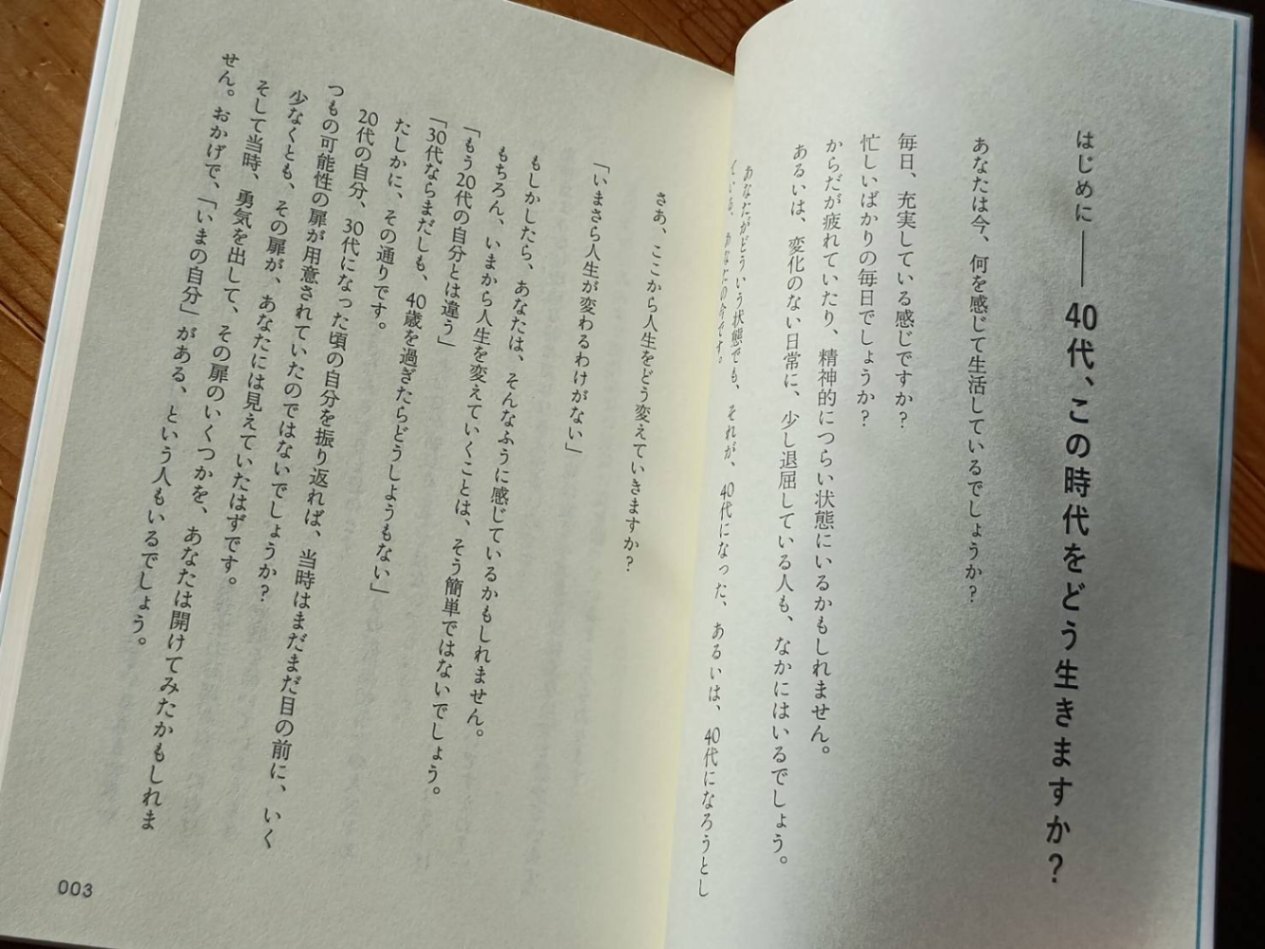 はじめに――40代、この時代をどう生きますか?
あなたは今、何を感じて生活しているでしょうか?
毎日、充実している感じですか?
忙しいばかりの毎日でしょうか?
からだが疲れていたり、精神的につらい状態にいるかもしれません。
あるいは、変化のない日常に、少し退屈している人も、なかにはいるでしょう。
あなたがどういう状態でも、それが、40代になった、あるいは、40代になろうとし
ている、あなたの今です。
さあ、ここから人生をどう変えていきますか?
「いまさら人生が変わるわけがない」
もしかしたら、あなたは、そんなふうに感じているかもしれません。
もちろん、いまから人生を変えていくことは、そう簡単ではないでしょう。
「もう20代の自分とは違う」
「30代ならまだしも、40歳を過ぎたらどうしようもない」
たしかに、その通りです。
20代の自分、30代になった頃の自分を振り返れば、当時はまだまだ目の前に、いく
つもの可能性の扉が用意されていたのではないでしょうか?
少なくとも、その扉が、あなたには見えていたはずです。
そして当時、勇気を出して、その扉のいくつかを、あなたは開けてみたかもしれま
せん。おかげで、「いまの自分」がある、という人もいるでしょう。
003